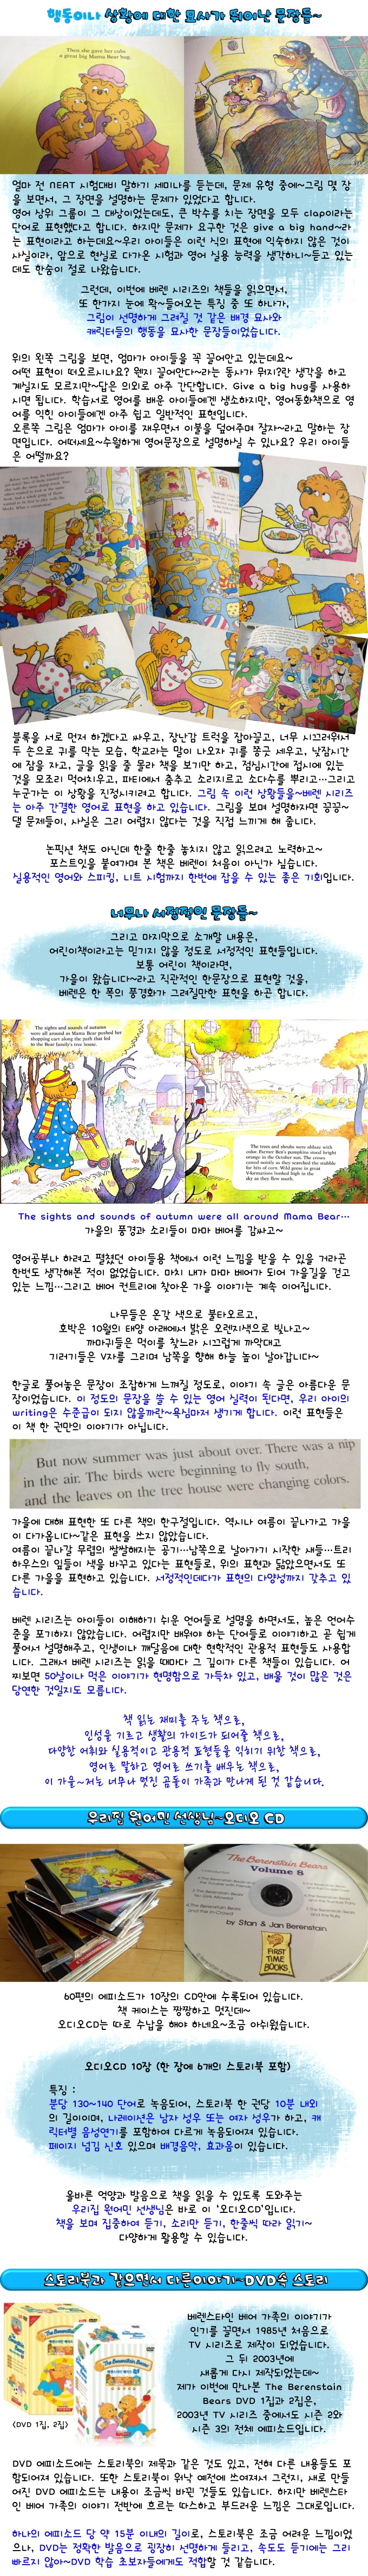 행동이나 상황에 대한 묘사가 뛰어난 문장들~
Then she gave her cubs
a great big Mama Bear hug.
얼마 전 NEAT 시험대비 말하기 세미나를 듣는데, 문제 유형 중에~그림 몇 장
을 보면서, 그 장면을 설명하는 문제가 있었다고 합니다.
영어 상위 그룹이 그 대상이었는데도, 큰 박수를 치는 장면을 모두 clap이라는
단어로 표현했다고 합니다. 하지만 문제가 요구한 것은 give a big hand~라
는 표현이라고 하는데요~우리 아이들은 이런 식의 표현에 익숙하지 않은 것이
사실이라, 앞으로 현실로 다가온 시험과 영어 실용 능력을 생각하니~듣고 있는
데도 한숨이 절로 나왔습니다.
그런데, 이번에 베렌 시리즈의 책들을 읽으면서,
또 한가지 눈에 확~들어오는 특징 중 또 하나가,
그림이 선명하게 그려질 것 같은 배경 묘사와
캐릭터들의 행동을 묘사한 문장들이었습니다.
위의 왼쪽 그림을 보면, 엄마가 아이들을 꼭 끌어안고 있는데요~
어떤 표현이 떠오르시나요? 왠지 끌어안다~라는 동사가 뭐지?란 생각을 하고
계실지도 모르지만~답은 의외로 아주 간단합니다. Give a big hug를 사용하
시면 됩니다. 학습서로 영어를 배운 아이들에겐 생소하지만, 영어동화책으로 영
어를 익힌 아이들에겐 아주 쉽고 일반적인 표현입니다.
오른쪽 그림은 엄마가 아이를 재우면서 이불을 덮어주며 잘자~라고 말하는 장
면입니다. 어떠세요~수월하게 영어문장으로 설명하실 수 있나요? 우리 아이들
은 어떨까요?
블록을 서로 먼저 하겠다고 싸우고, 장난감 트럭을 잡아끌고, 너무 시끄러워서
두 손으로 귀를 막는 모습, 학교라는 말이 나오자 귀를 쫑긋 세우고, 낮잠시간
에 잠을 자고, 글을 읽을 줄 몰라 책을 보기만 하고, 점심시간에 접시에 있는
것을 모조리 먹어치우고, 파티에서 춤추고 소리지르고 소다수를 뿌리고…그리고
누군가는 이 상황을 진정시키려고 합니다. 그림 속 이런 상황들을~베렌 시리즈
는 아주 간결한 영어로 표현을 하고 있습니다. 그림을 보며 설명하자면 끙끙~
댈 문제들이, 사실은 그리 어렵지 않다는 것을 직접 느끼게 해 줍니다.
논픽션 책도 아닌데 한줄 한줄 놓치지 않고 읽으려고 노력하고~
포스트잇을 붙여가며 본 책은 베렌이 처음이 아닌가 싶습니다.
실용적인 영어와 스피킹, 니트 시험까지 한번에 잡을 수 있는 좋은 기회입니다.
너무나 서정적인 문장들~
그리고 마지막으로 소개할 내용은,
어린이책이라고는 믿기지 않을 정도로 서정적인 표현들입니다.
보통 어린이 책이라면,
가을이 왔습니다~라고 직관적인 한문장으로 표현할 것을,
베렌은 한 폭의 풍경화가 그려질만한 표현을 하곤 합니다.
The sights and sounds of autumn
were all around as Mama Bear pushed her
shopping cart along the path that led
to the Bear family's tree house.
The trees and shrubs were ablaze with
color. Farmer Ben's pumpkins stood bright
orange in the October sun. The crows
cawed noisily as they searched the stubble
for bits of corn. Wild geese in great
V-formations honked high in the
sky as they flew south.
The sights and sounds of autumn were all around Mama Bear…
가을의 풍경과 소리들이 마마 베어를 감싸고~
영어공부나 하려고 펼쳤던 아이들용 책에서 이런 느낌을 받을 수 있을 거라곤
한번도 생각해본 적이 없었습니다. 마치 내가 마마 베어가 되어 가을길을 걷고
있는 느낌…그리고 베어 컨트리에 찾아온 가을 이야기는 계속 이어집니다.
나무들은 온갖 색으로 불타오르고,
호박은 10월의 태양 아래에서 밝은 오렌지색으로 빛나고~
까마귀들은 먹이를 찾느라 시끄럽게 까악대고
기러기들은 V자를 그리며 남쪽을 향해 하늘 높이 날아갑니다~
한글로 풀어놓은 문장이 조잡하게 느껴질 정도로, 이야기 속 글은 아름다운 문
장이었습니다. 이 정도의 문장을 쓸 수 있는 영어 실력이 된다면, 우리 아이의
writing은 수준급이 되지 않을까란~욕심마저 생기게 합니다. 이런 표현들은
이 책 한 권만의 이야기가 아닙니다.
But now summer was just about over. There was a nip
in the air. The birds were beginning to fly south,
and the leaves on the tree house were changing colors.
가을에 대해 표현한 또 다른 책의 한구절입니다. 역시나 여름이 끝나가고 가을
이 다가옵니다~같은 표현을 쓰지 않았습니다.
여름이 끝나갈 무렵의 쌀쌀해지는 공기…남쪽으로 날아가기 시작한 새들…트리
하우스의 잎들이 색을 바꾸고 있다는 표현들로, 위의 표현과 닮았으면서도 또
다른 가을을 표현하고 있습니다. 서정적인데다가 표현의 다양성까지 갖추고 있
습니다.
베렌 시리즈는 아이들이 이해하기 쉬운 언어들로 설명을 하면서도, 높은 언어수
준을 포기하지 않았습니다. 어렵지만 배워야 하는 단어들로 이야기하고 곧 쉽게
풀어서 설명해주고, 인생이나 깨달음에 대한 현학적인 관용적 표현들도 사용합니
다. 그래서 베렌 시리즈는 읽을 때마다 그 깊이가 다른 책들이 있습니다. 어
찌보면 50살이나 먹은 이야기가 현명함으로 가득차 있고, 배울 것이 많은 것은
당연한 것일지도 모릅니다.
책 읽는 재미를 주는 책으로,
인성을 기르고 생활의 가이드가 되어줄 책으로,
다양한 어휘와 실용적이고 관용적 표현들을 익히기 위한 책으로,
영어로 말하고 영어로 쓰기를 배우는 책으로,
이 가을~저는 너무나 멋진 곰돌이 가족과 만나게 된 것 같습니다.
우리집 원어민 선생님~오디오 CD
The Berenstain Bears
Volume 8
by Stan & Jan Berenstain
FIRST
TIME
BOOKS
60편의 에피소드가 10장의 CD안에 수록되어 있습니다.
책 케이스는 짱짱하고 멋진데~
오디오CD는 따로 수납을 해야 하네요~조금 아쉬웠습니다.
오디오CD 10장 (한 장에 6개의 스토리북 포함)
특징 :
분당 130~140 단어로 녹음되어, 스토리북 한 권당 10분 내외
의 길이이며, 나레이션은 남자 성우 또는 여자 성우가 하고, 캐
릭터별 음성연기를 포함하여 다르게 녹음되어져 있습니다.
페이지 넘김 신호 있으며 배경음악, 효과음이 있습니다.
올바른 억양과 발음으로 책을 읽을 수 있도록 도와주는
우리집 원어민 선생님은 바로 이 '오디오CD'입니다.
책을 보며 집중하여 듣기, 소리만 듣기, 한줄씩 따라 읽기~
다양하게 활용할 수 있습니다.
스토리북과 같으면서 다른이야기~DVD속 스토리
<DVD 1집, 2집>
베렌스타인 베어 가족의 이야기가
인기를 끌면서 1985년 처음으로
TV 시리즈로 제작이 되었습니다.
그 뒤 2003년에
새롭게 다시 제작되었는데~
제가 이번에 만나본 The Berenstain
Bears DVD 1집과 2집은,
2003년 TV 시리즈 중에서도 시즌 2와
시즌 3의 전체 에피소드입니다.
DVD 에피소드에는 스토리북의 제목과 같은 것도 있고, 전혀 다른 내용들도 포
함되어져 있습니다. 또한 스토리북이 워낙 예전에 쓰여져서 그런지, 새로 만들
어진 DVD 에피소드는 내용이 조금씩 바뀐 것들도 있습니다. 하지만 베렌스타
인 베어 가족의 이야기 전반에 흐르는 따스하고 부드러운 느낌은 그대로입니다.
하나의 에피소드 당 약 15분 이내의 길이로, 스토리북은 조금 어려운 느낌이었
으나, DVD는 정확한 발음으로 굉장히 선명하게 들리고, 속도도 듣기에는 그리
빠르지 않아~DVD 학습 초보자들에게도 적합할 것 같습니다.